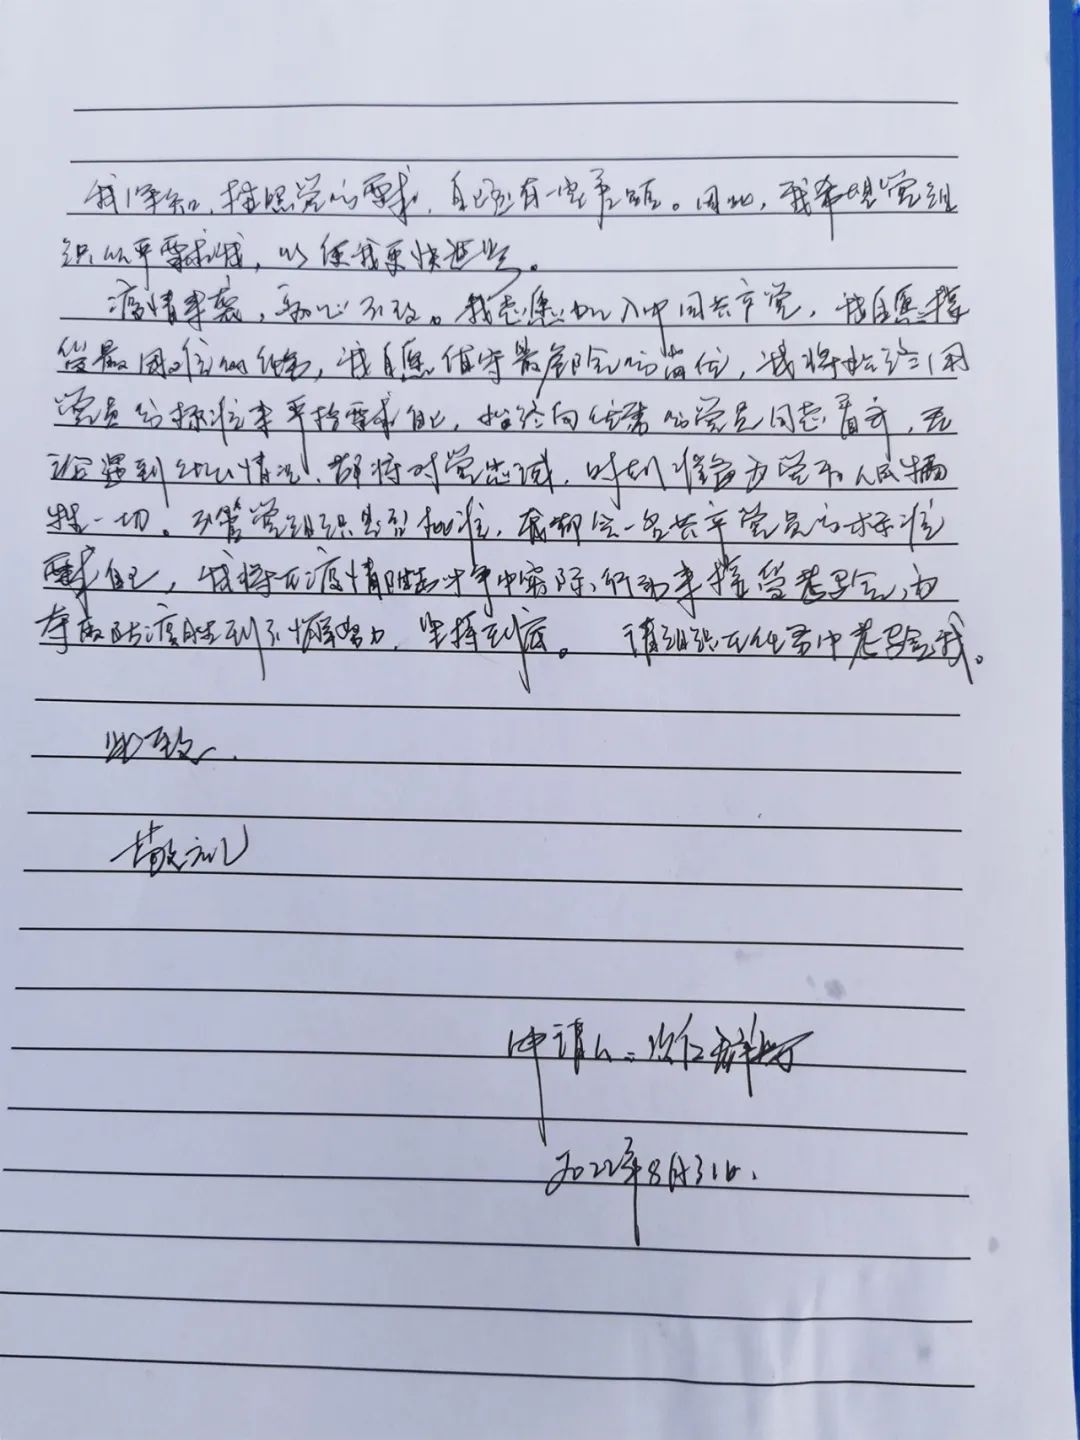 我深知，按照党的要求，自己还有一定差距。因此，我希望党组
织从严要求我，以便我更快进步。
疫情来袭，初心不改。我志愿加入中国共产党，我自愿接
受最困难的任务，我自愿值守最危险的岗位，我将始终用
党员的标准来严格要求自己，始终向优秀的党员同志看齐，无
论遇到何种情况，都将对党忠诚，时刻准备为党和人民牺
牲一切。不管党组织是否批准，我都会一名共产党员的标准
要求自己，我将在疫情防控斗争中实际行动来接受考验，为
夺取防疫胜利不懈努力，坚持到底。 请组织在任务中考验我。
此致
敬礼
申请人：次仁群
2022年8月31日.